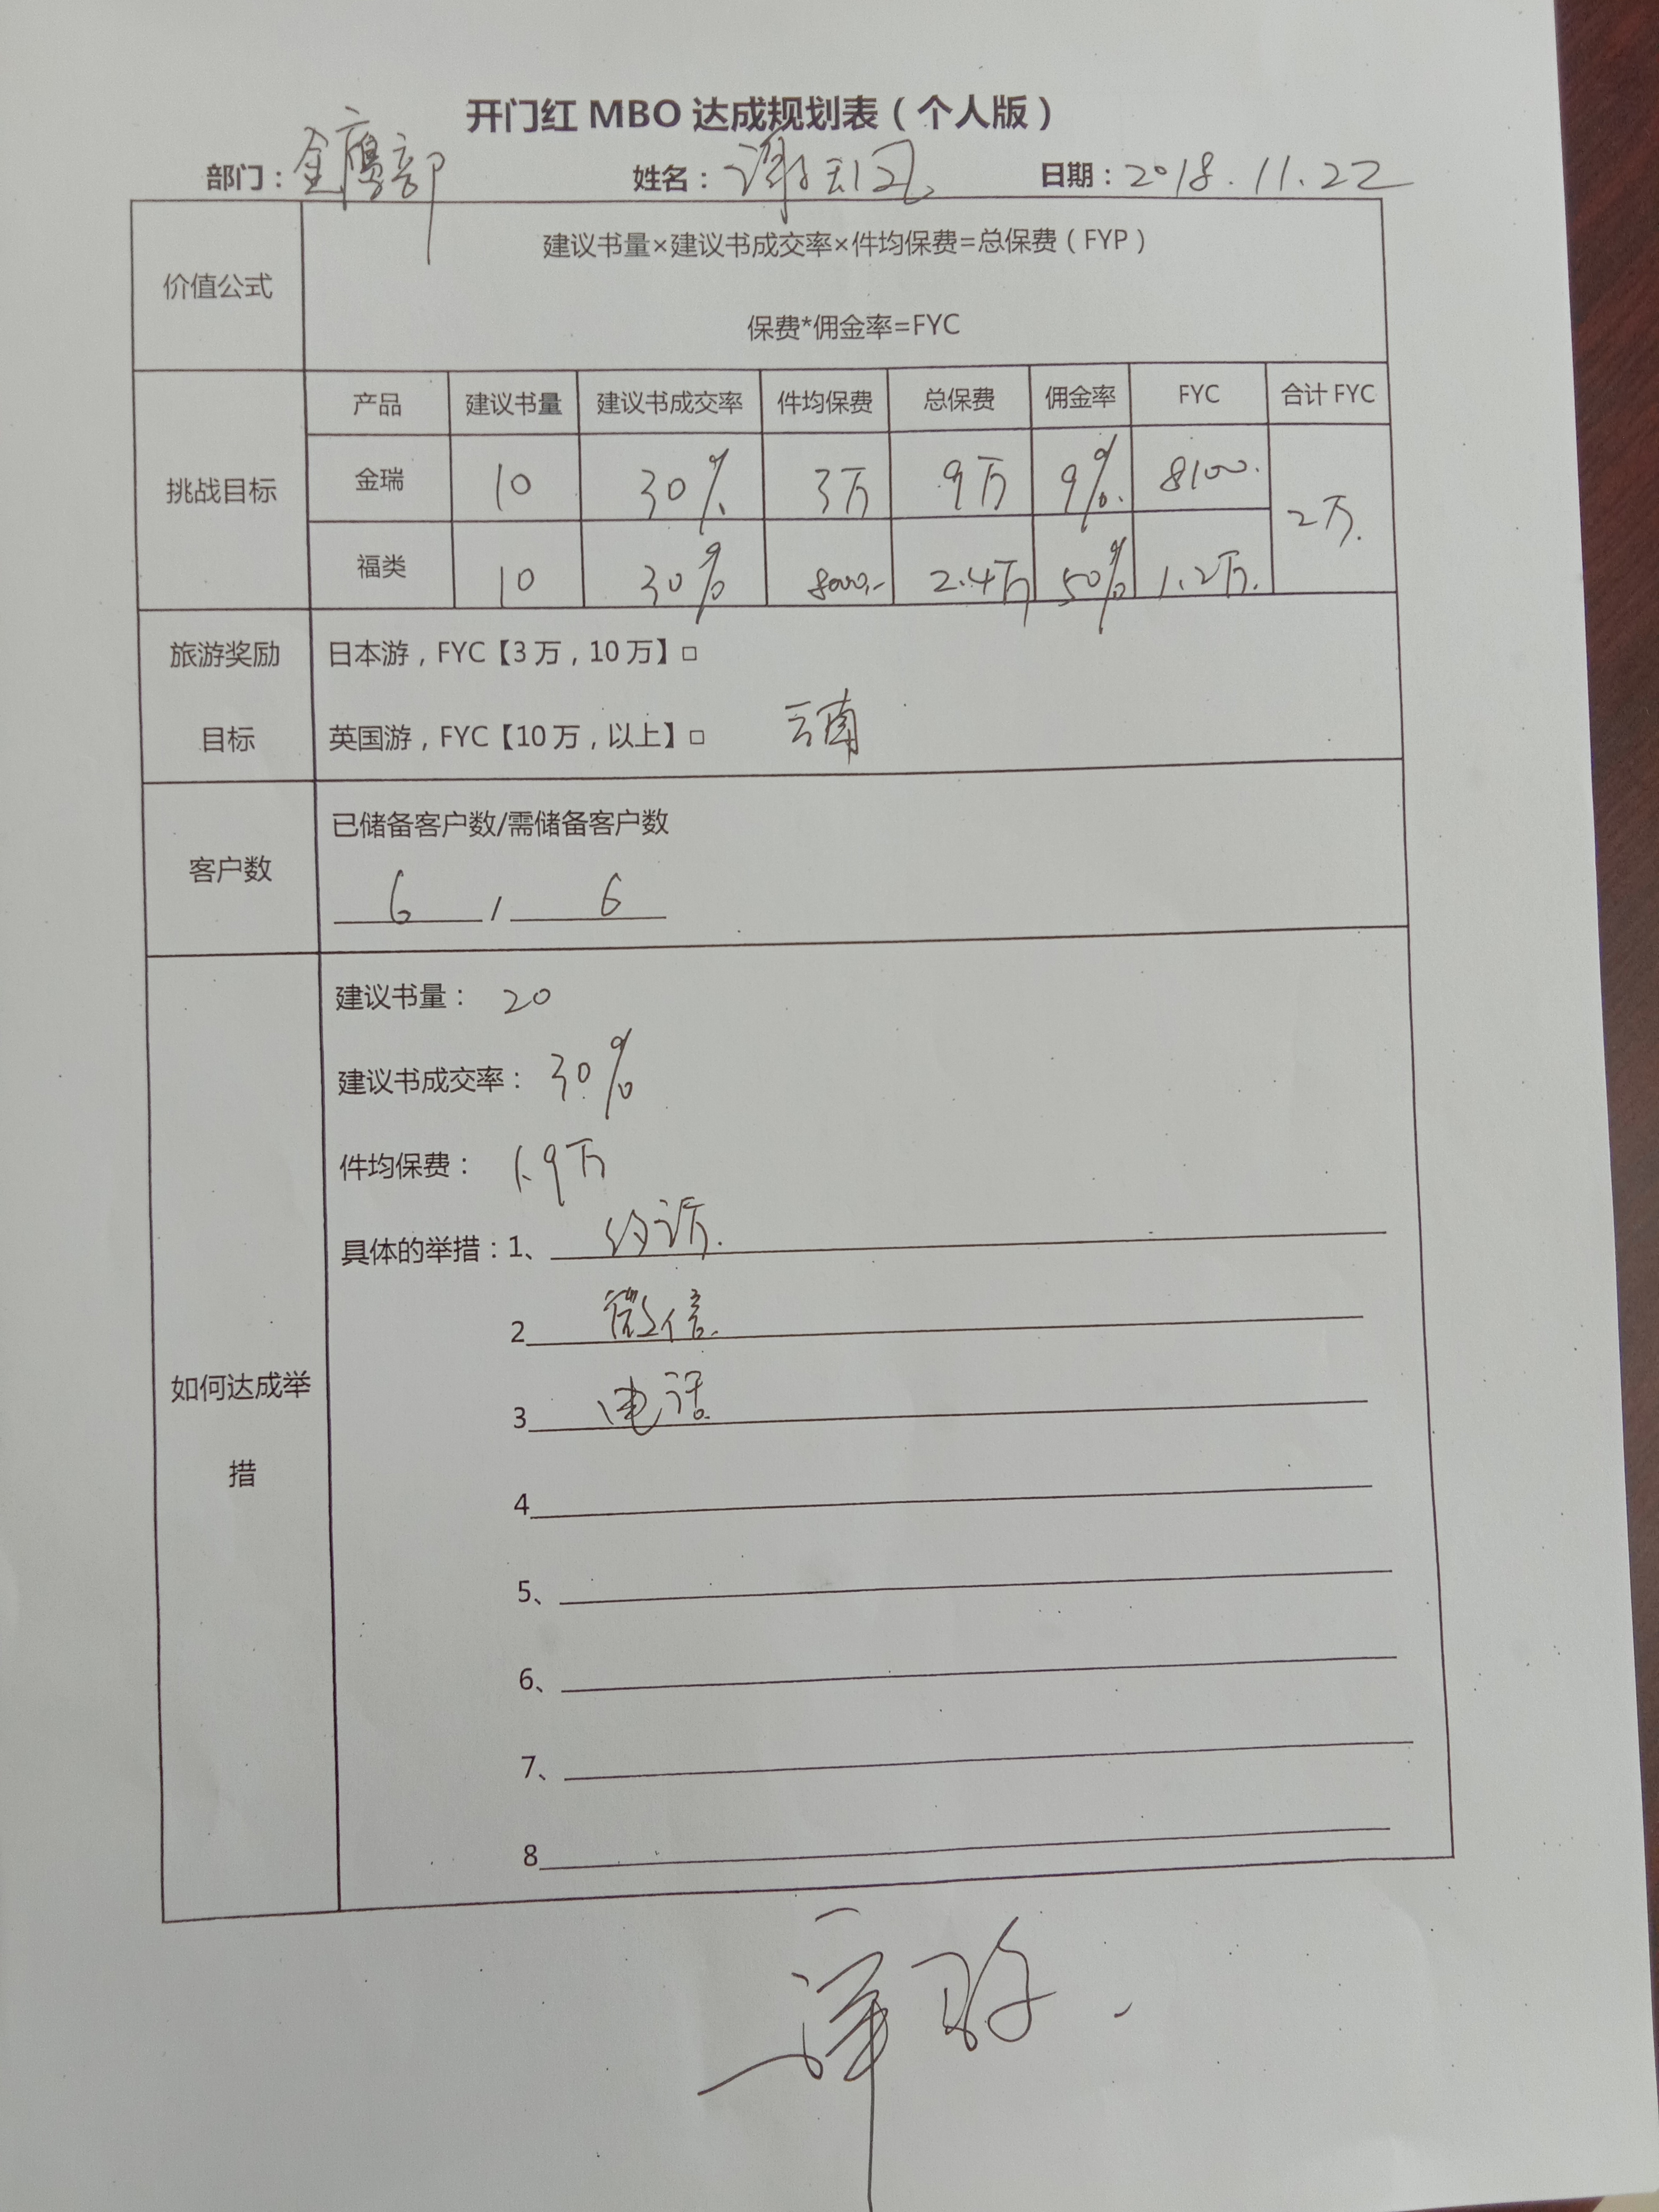 开门红 MBO 达成规划表（个人版）
部门：金鹰部 姓名：谢 日期：2018.11.22
价值公式 建议书量×建议书成交率×件均保费=总保费（FYP）
保费*佣金率=FYC
挑战目标 产品 建议书量 建议书成交率 件均保费 总保费 佣金率 FYC 合计 FYC
金瑞 10 30% 3万 9万 9% 8100. 2万.
福类 10 30% 8000.- 2.4万 50% 1.2万.
旅游奖励目标 日本游，FYC【3 万，10 万】□
英国游，FYC【10 万，以上】□ 云南
客户数 已储备客户数/需储备客户数
6 / 6
如何达成举措 建议书量：20
建议书成交率：30%
件均保费：1.9万
具体的举措：1、约访.
2 微信.
3 电话
4
5、
6、
7、
8